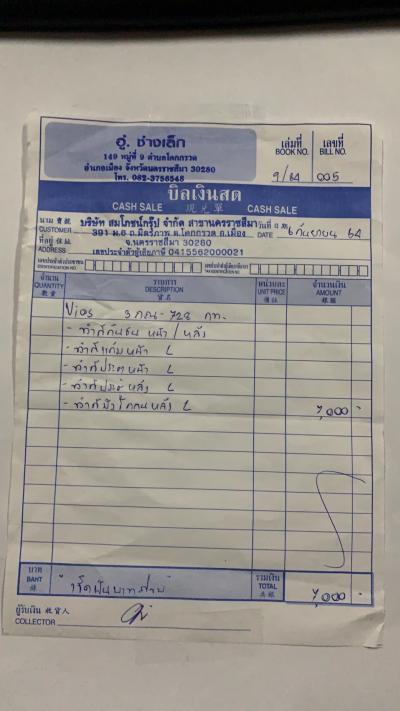 อู่ ช่างเล็ก
149 หมู่ที่ 9 ตำบลโคกกรวด
อำเภอเมือง จังหวัดนครราชสีมา 30280
โทร. 082-3756548
เล่มที่ เลขที่
BOOK NO. BILL NO.
9/64 005
บิลเงินสด
CASH SALE 現兌單 CASH SALE
นาม บริษัท สมโภชน์กรุ๊ป จำกัด สาขานครราชสีมา วันที่ 6 กันยายน 64
CUSTOMER 391 ม.6 ถ.มิตรภาพ ต.โคกกรวด อ.เมือง DATE
ที่อยู่ จ.นครราชสีมา 30280
ADDRESS เลขประจำตัวผู้เสียภาษี 0415562000021
จำนวน รายการ หน่วยละ จำนวนเงิน
QUANTITY DESCRIPTION UNIT PRICE AMOUNT
Vios 3 กณ - 728 กท.
- ทำสีกันชน หน้า / หลัง
- ทำสีแก้มหน้า L
- ทำสีประตูหน้า L
- ทำสีประตูหลัง L
- ทำสีบังโคลนหลัง L 7,000 -
บาท รวมเงิน
BAHT เจ็ดพันบาทถ้วน TOTAL 7,000 -
ผู้รับเงิน 收貨人
COLLECTOR